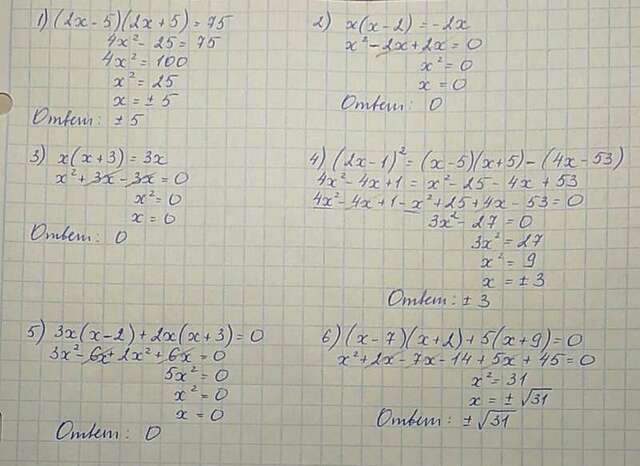 1) (2x-5)(2x+5) = 75
4x² - 25 = 75
4x² = 100
x² = 25
x = ± 5
Ответ: ± 5
2) x(x-2) = -2x
x² - 2x + 2x = 0
x² = 0
x = 0
Ответ: 0
3) x(x+3) = 3x
x² + 3x - 3x = 0
x² = 0
x = 0
Ответ: 0
4) (2x-1)² = (x-5)(x+5) - (4x-53)
4x² - 4x + 1 = x² - 25 - 4x + 53
4x² - 4x + 1 - x² + 25 + 4x - 53 = 0
3x² - 27 = 0
3x² = 27
x² = 9
x = ± 3
Ответ: ± 3
5) 3x(x-2) + 2x(x+3) = 0
3x² - 6x + 2x² + 6x = 0
5x² = 0
x² = 0
x = 0
Ответ: 0
6) (x-7)(x+2) + 5(x+9) = 0
x² + 2x - 7x - 14 + 5x + 45 = 0
x² = 31
x = ± √31
Ответ: ± √31